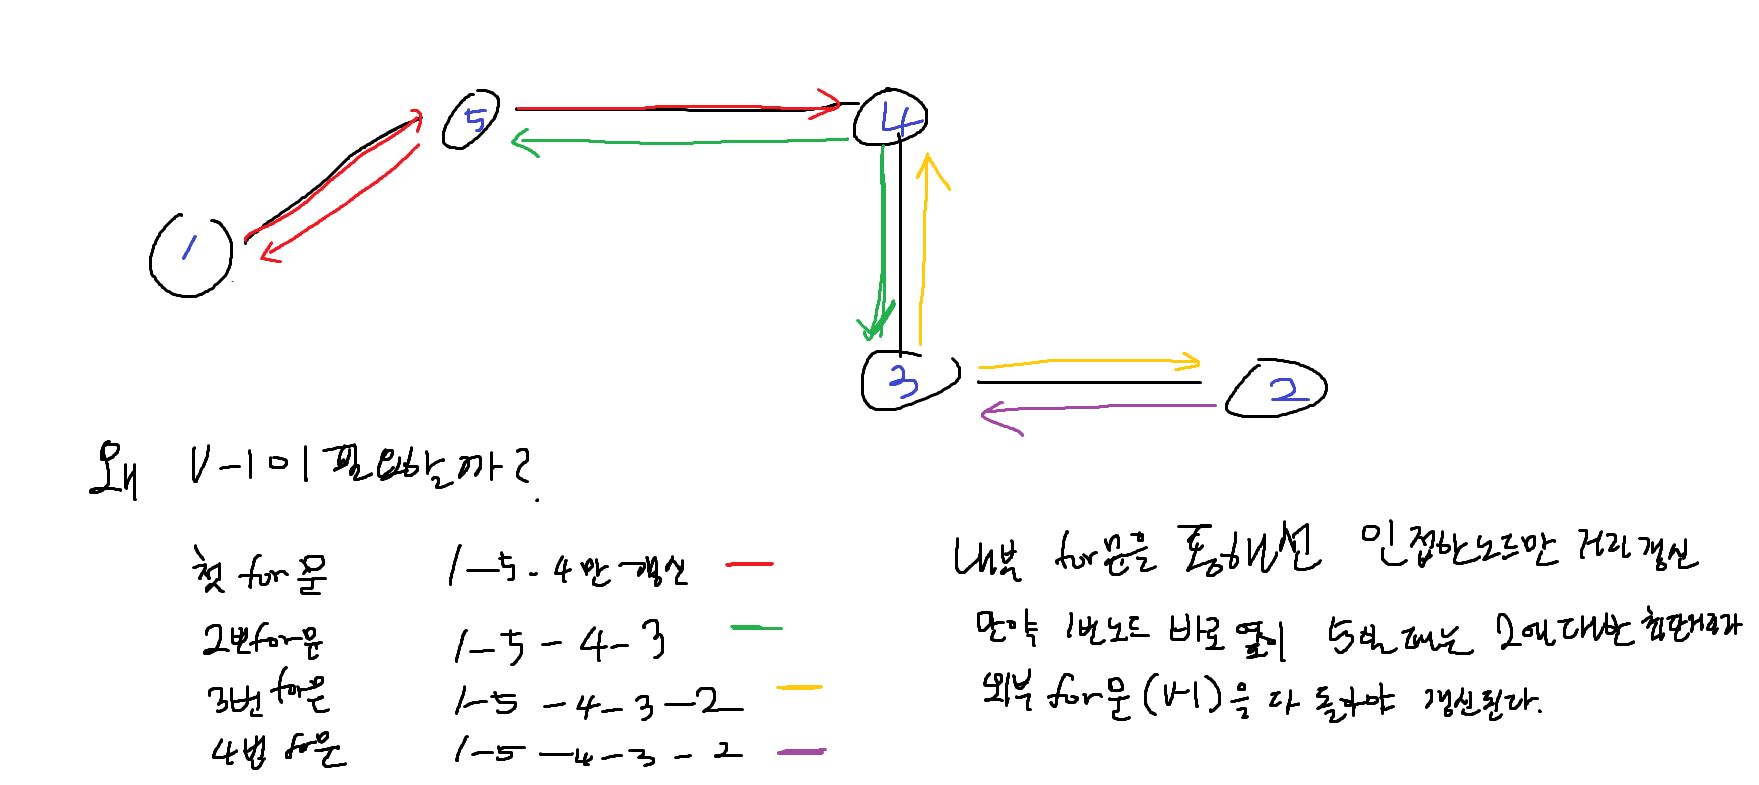 5
4
1
3
2
왜 V-1이 필요할까?
첫 for문 1-5-4만 갱신
2번for문 1-5-4-3
3번for문 1-5-4-3-2
4번 for문 1-5-4-3-2
내부 for문을 통해선 인접한노드만 거리갱신
만약 1번노드 바로 옆이 5일때는 2에대한 최단거리가
외부 for문(V-1)을 다 돌아야 갱신된다.